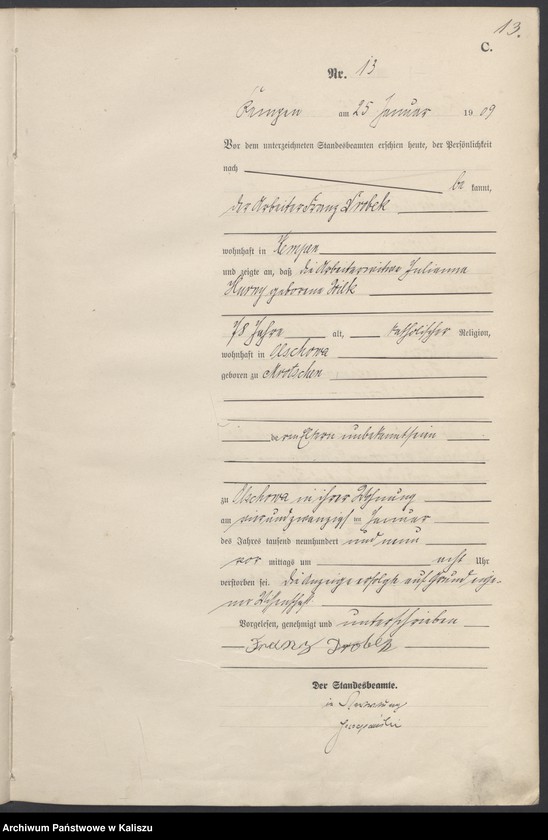 13.
C.
Nr. 13
Kempen am 25 Januar 1909
Vor dem unterzeichneten Standesbeamten erschien heute, der Persönlichkeit
nach
be kannt,
der Arbeiter Franz Drobek
wohnhaft in Kempen
und zeigte an, daß die Arbeiterwitwe Julianna
Hurny geborene Wilk
78 Jahre alt, katholischer Religion,
wohnhaft in Olschowa
geboren zu Mrotschen
deren Eltern unbekannt seien
zu Olschowa in ihrer Wohnung
am einundzwanzigst en Januar
des Jahres tausend neunhundert und neun
vor mittags um acht Uhr
verstorben sei. Die Anzeige erfolgte auf Grund eige-
ner Wissenschaft.
Vorgelesen, genehmigt und unterschrieben
Franz Drobek
Der Standesbeamte.
in Vertretung
Archiwum Państwowe w Kaliszu